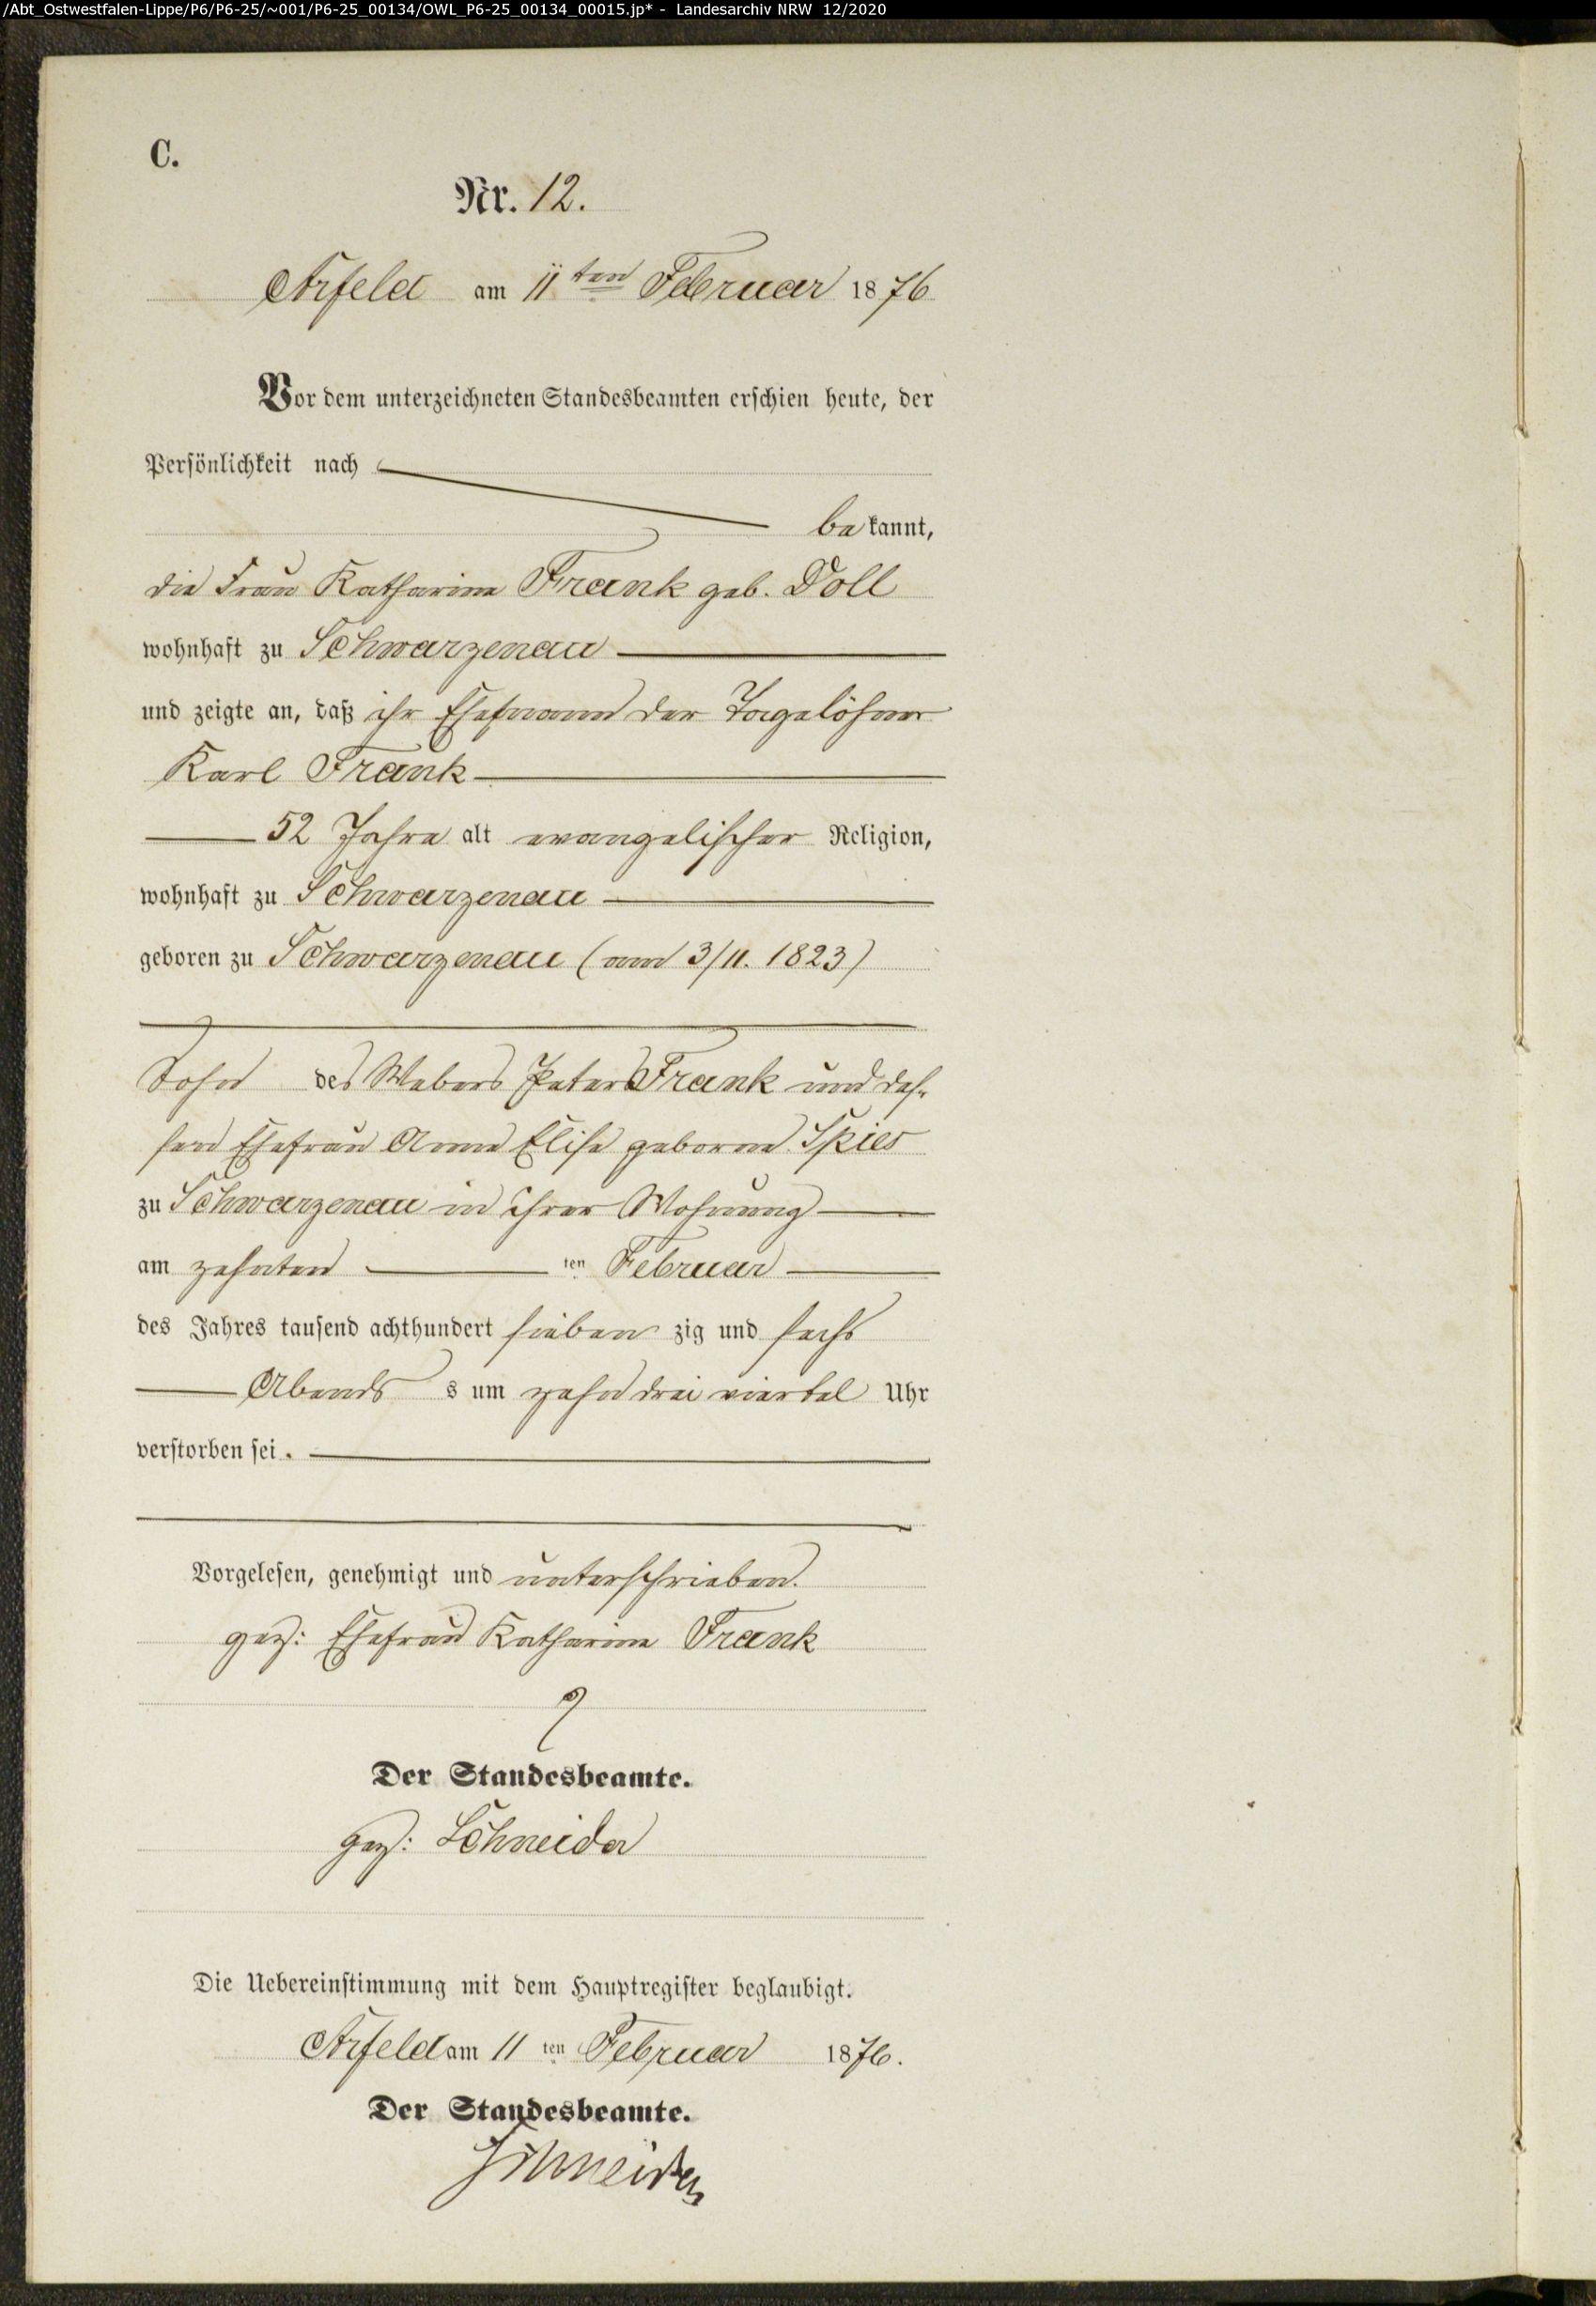 /Abt_Ostwestfalen-Lippe/P6/P6-25/~001/P6-25_00134/OWL_P6-25_00134_00015.jp* - Landesarchiv NRW 12/2020
C.
Nr. 12.
Arfeld am 11ten Februar 1876
Vor dem unterzeichneten Standesbeamten erschien heute, der
Persönlichkeit nach
bekannt,
die Frau Katharina Frank geb. Doll
wohnhaft zu Schwarzenau
und zeigte an, daß ihr Ehemann der Tagelöhner
Karl Frank
52 Jahre alt evangelischer Religion,
wohnhaft zu Schwarzenau
geboren zu Schwarzenau (am 3/11. 1823)
Sohn des Webers Peter Frank und des-
sen Ehefrau Anna Elise geborne Spies
zu Schwarzenau in ihrer Wohnung
am zehnten ten Februar
des Jahres tausend achthundert siebenzig und sechs
Abends s um zehn drei viertel Uhr
verstorben sei.
Vorgelesen, genehmigt und unterschrieben.
gez: Ehefrau Katharina Frank
Der Standesbeamte.
gez: Schneider
Die Uebereinstimmung mit dem Hauptregister beglaubigt.
Arfeld am 11ten Februar 1876.
Der Standesbeamte.
Schneider